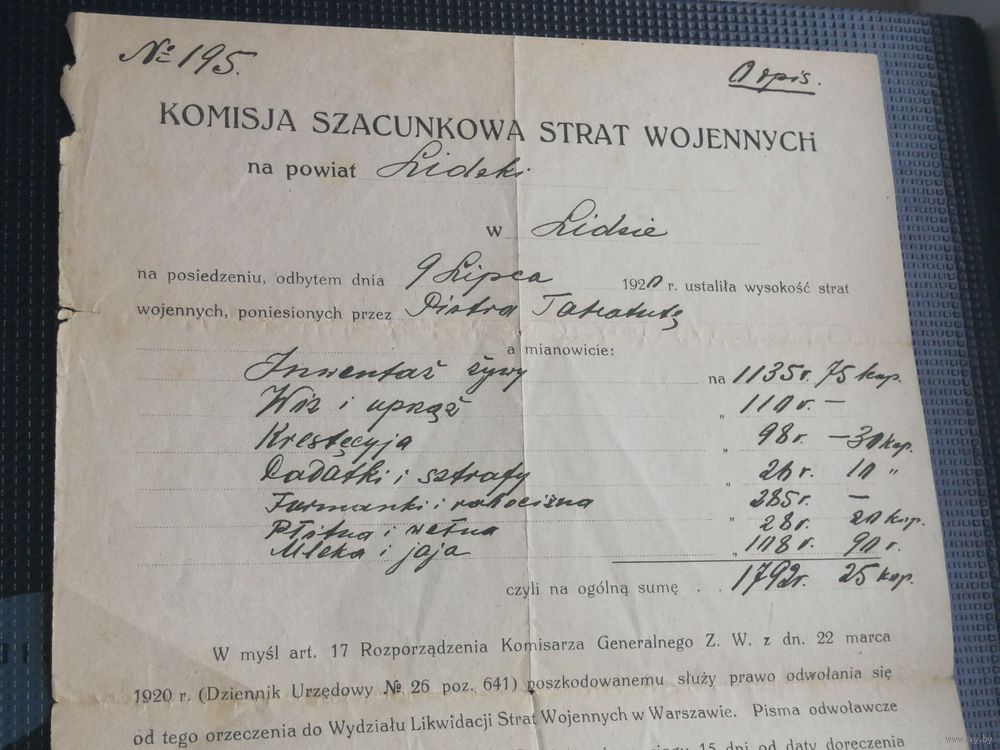 № 195.
Odpis.
KOMISJA SZACUNKOWA STRAT WOJENNYCH
na powiat Lidzki
w Lidzie
na posiedzeniu, odbytem dnia 9 Lipca 1920 r. ustaliła wysokość strat
wojennych, poniesionych przez Piotra
a mianowicie:
Inwentaż żywy na 1135 r. 75 kop.
Wóz i uprząż „ 110 r. —
Krestęcyja „ 98 r. — 30 kop.
Dadatki i sztrafy „ 26 r. 10 „
Furmanki i robocizna 285 r. —
Płótna i wełna „ 28 r. 20 kop.
Mleka i jaja „ 108 r. 90 r.
czyli na ogólną sumę . . 1792 r. 25 kop.
W myśl art. 17 Rozporządzenia Komisarza Generalnego Z. W. z dn. 22 marca
1920 r. (Dziennik Urzędowy № 26 poz. 641) poszkodowanemu służy prawo odwołania się
od tego orzeczenia do Wydziału Likwidacji Strat Wojennych w Warszawie. Pisma odwoławcze
15 dni od daty doręczenia
www.ay.by